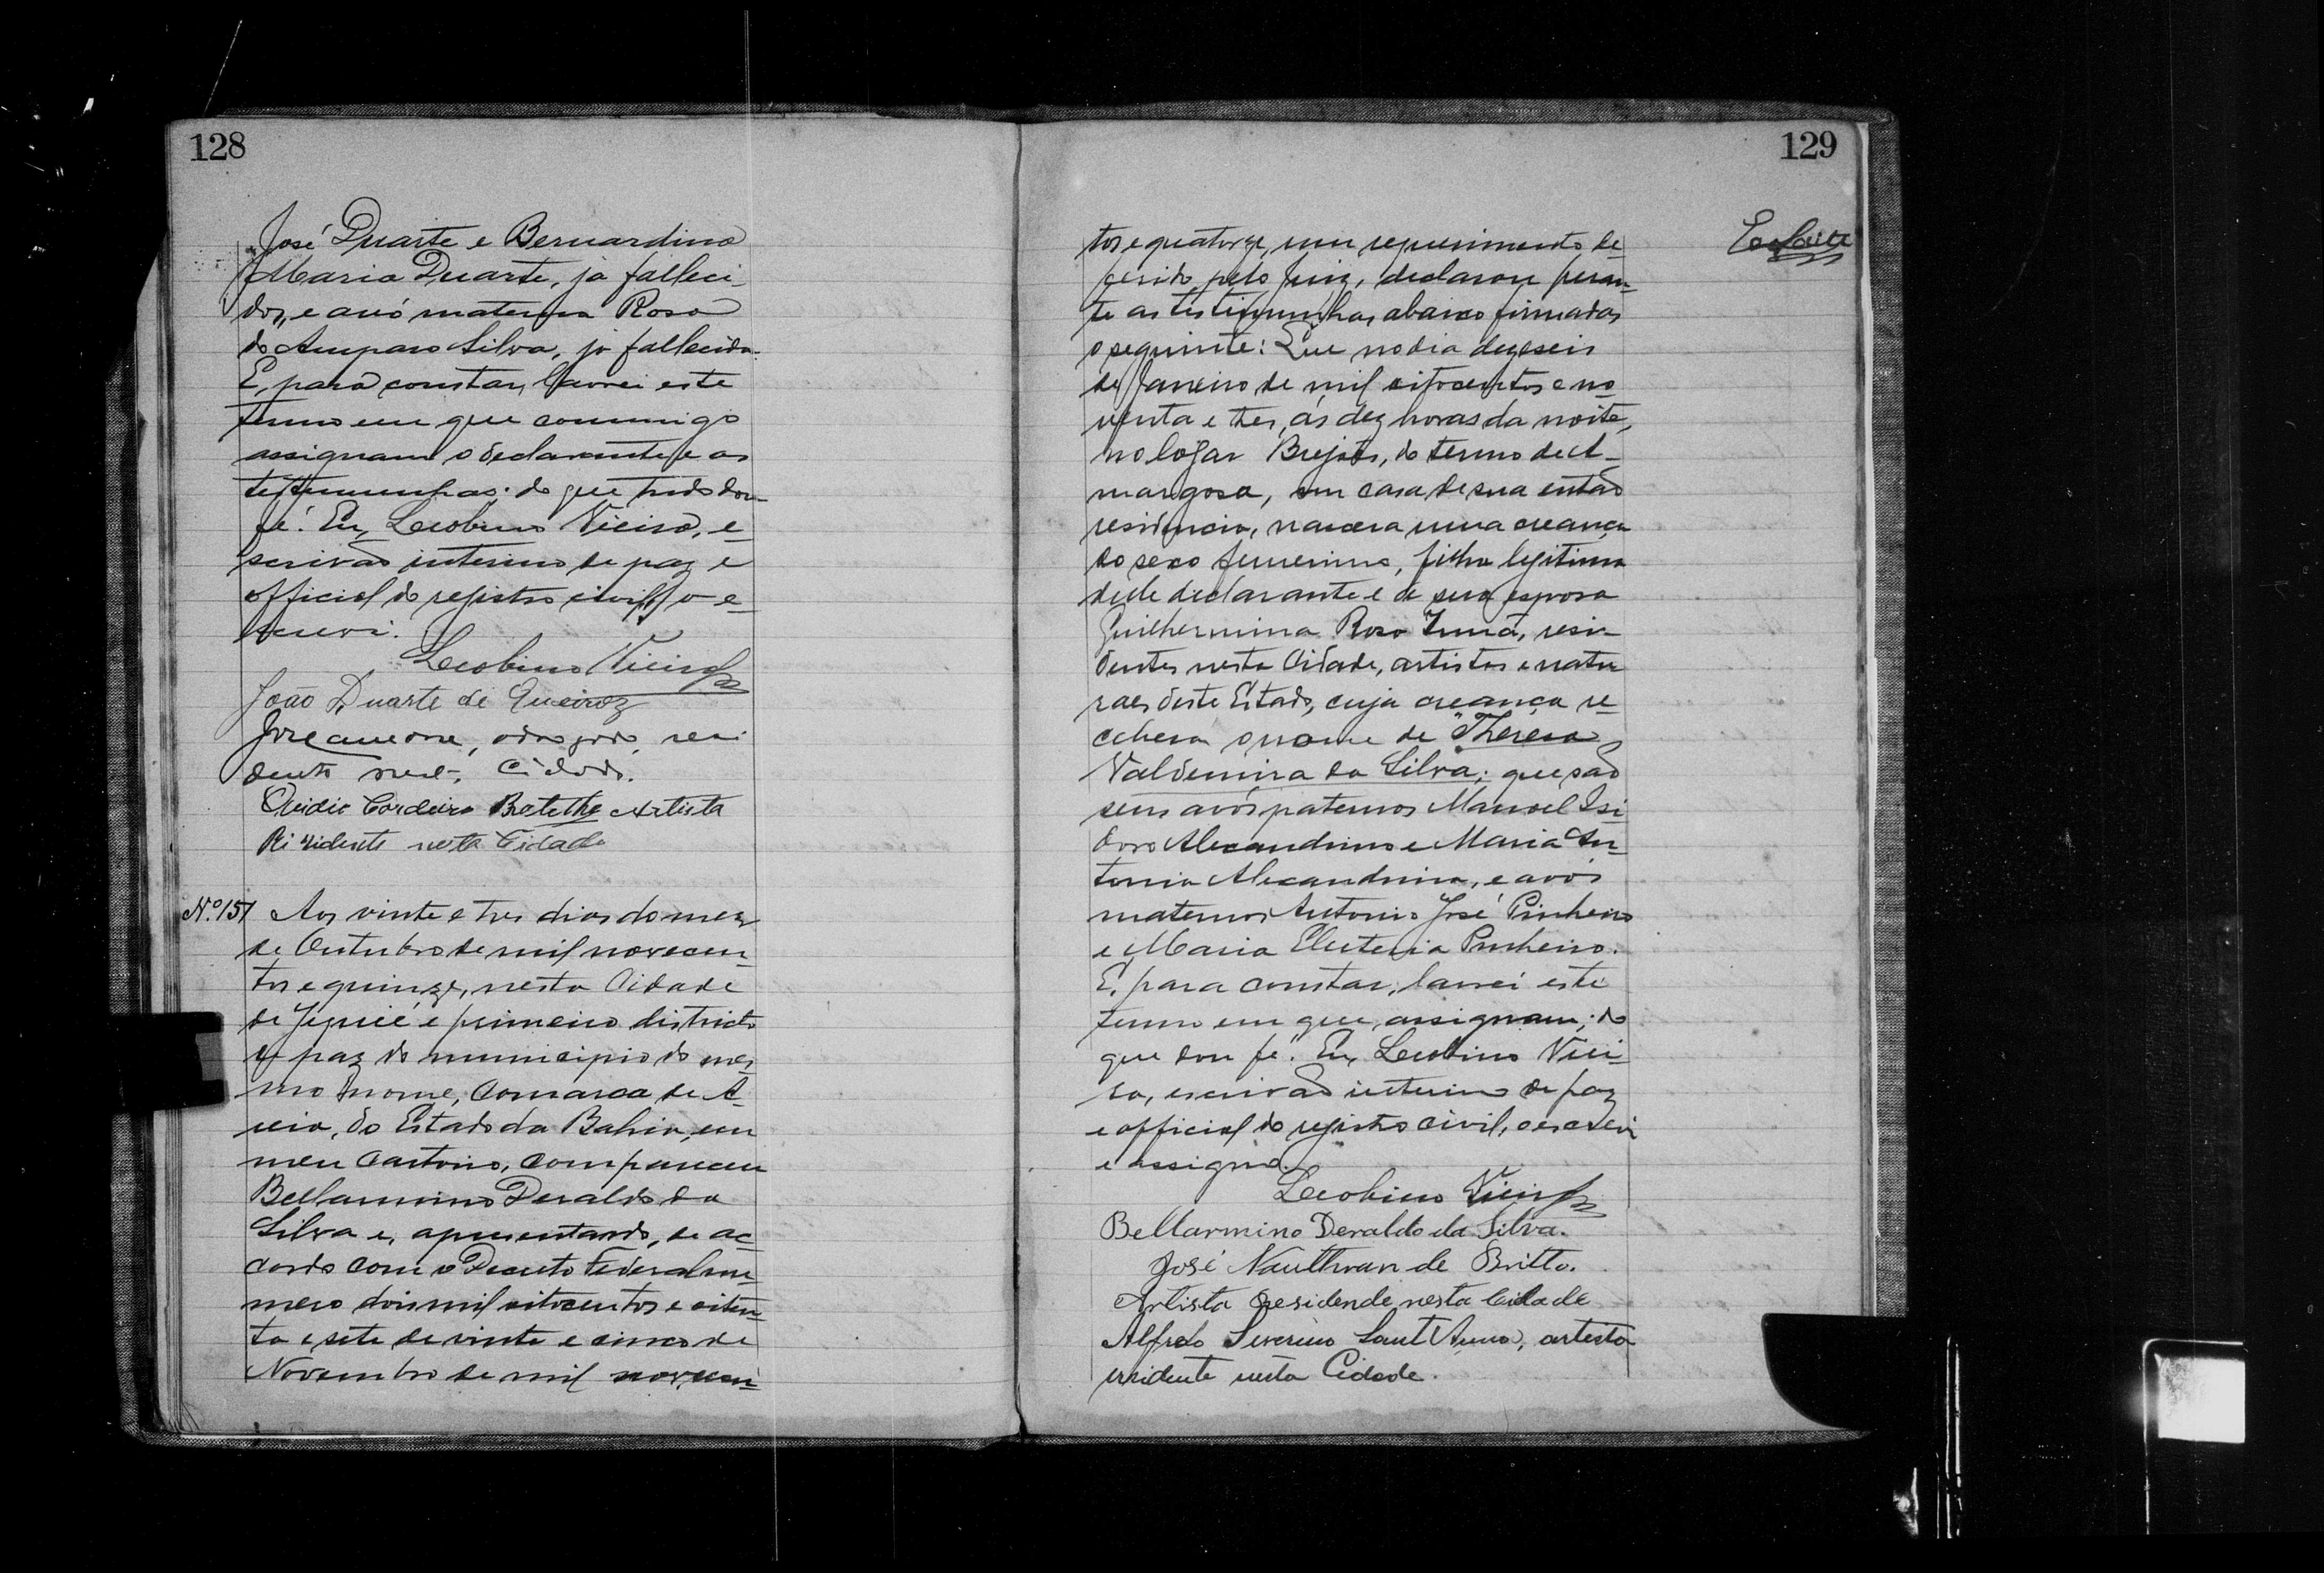 128
José Duarte e Bernardina
Maria Duarte, já falleci-
dos, e avó materna Rosa
do Amparo Silva, já fallecida.
E, para constar, lavrei este
termo em que commigo
assignam o declarante e as
testemunhas: do que tudo dou
fé. Eu, Leobino Vieira, e-
scrivão interino de paz e
official do registro civil, o e-
screvi.
Leobino Vieira
João Duarte de Queiroz
resi
dente nest. Cidade.
Ovidio Cordeiro Botelho Artista
Rizidente nesta Cidade
Nº 151 Aos vinte e tres dias do mez
de Outubro de mil novecen-
tos e quinze, nesta Cidade
de Jequié e primeiro districto
de paz do municipio do mes-
mo nome, comarca de A-
reia, do Estado da Bahia, em
meu Cartorio, compareceu
Bellarmino Deraldo da
Silva e, apresentando, de ac-
cordo com o Decreto Federal nu-
mero dois mil oitocentos e oiten-
ta e sete de vinte e cinco de
Novembro de mil novecen-
129
tos e quatorze, um requerimento de-
ferido pelo Juiz, declarou peran-
te as testemunhas abaixo firmadas
o seguinte: Que no dia dezeseis
de Janeiro de mil oitocentos e no-
venta e tres, ás dez horas da noite,
no logar Brejões, do termo de A-
margosa, em casa de sua então
residencia, nascera uma creança
do sexo femenino, filha legitima
delle declarante e de sua esposa
Guilhermina Rosa resi-
dentes nesta Cidade, artistas e natu-
raes deste Estado, cuja creança re-
cebera o nome de "Thereza
Valdemira da Silva; que são
seus avós paternos Manoel Isi-
doro Alexandrino e Maria An-
tonia Alexandrina, e avós
maternos Antonio José Pinheiro
e Maria Eleuteria Pinheiro.
E, para constar, lavrei este
termo em que assignam; do
que dou fé. Eu, Leobino Viei-
ra, escrivão interino de paz
e official do registro civil, o escrevi
e assigno.
Leobino Vieira
Bellarmino Deraldo da Silva.
José de Britto.
Artista residende nesta Cidade
Alfredo Severino Sant'Anna, artista
residente nesta Cidade.